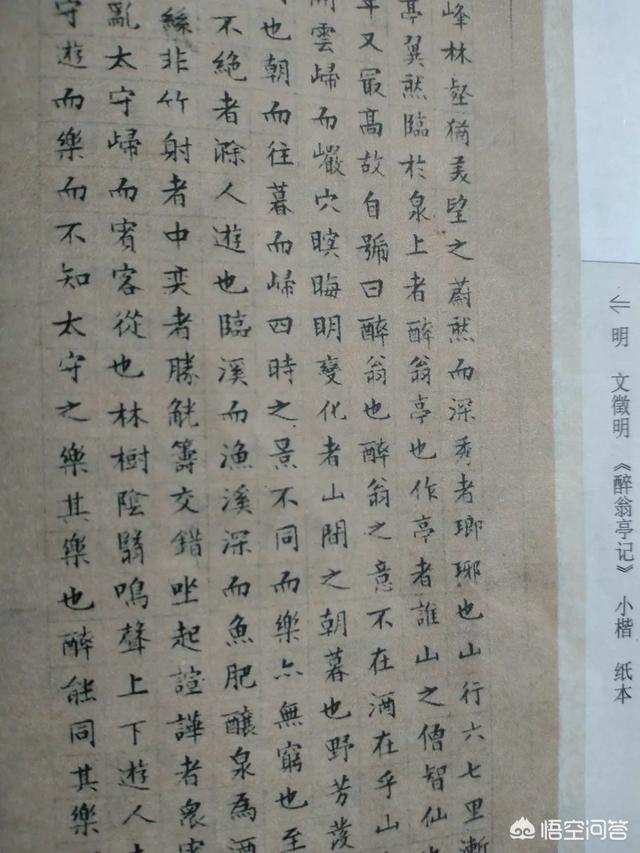 ⇐ 明 文徵明 《醉翁亭记》 小楷 纸本
峰林壑猶美望之蔚然而深秀者瑯琊也山行六七里漸
亭翼然臨於泉上者醉翁亭也作亭者誰山之僧智仙
又最高故自號曰醉翁也醉翁之意不在酒在乎山
開雲歸而巖穴暝晦明變化者山間之朝暮也野芳發
也朝而往暮而歸四時之景不同而樂亦無窮也至
不絕者滁人遊也臨溪而漁溪深而魚肥釀泉為酒
絲非竹射者中奕者勝觥籌交錯坐起諠譁者衆賓
亂太守歸而賓客從也林樹陰翳鳴聲上下遊人
守遊而樂而不知太守之樂其樂也醉能同其樂
悟空问答